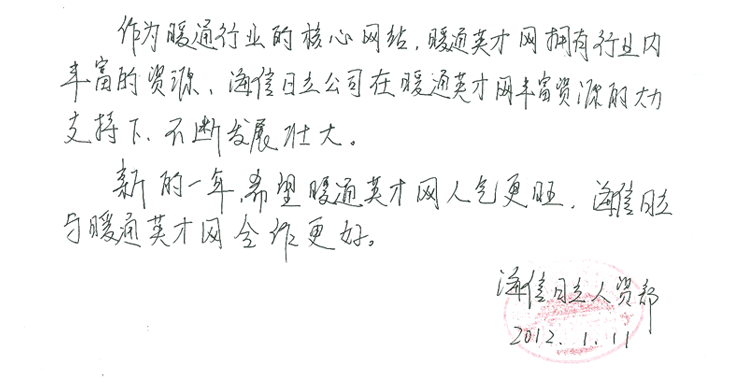 作为暖通行业的核心网站，暖通英才网拥有行业内
丰富的资源、海信日立公司在暖通英才网丰富资源的大力
支持下、不断发展壮大。
新的一年，希望暖通英才网人气更旺，海信日立
与暖通英才网合作更好。
海信日立人资部
2012.1.11